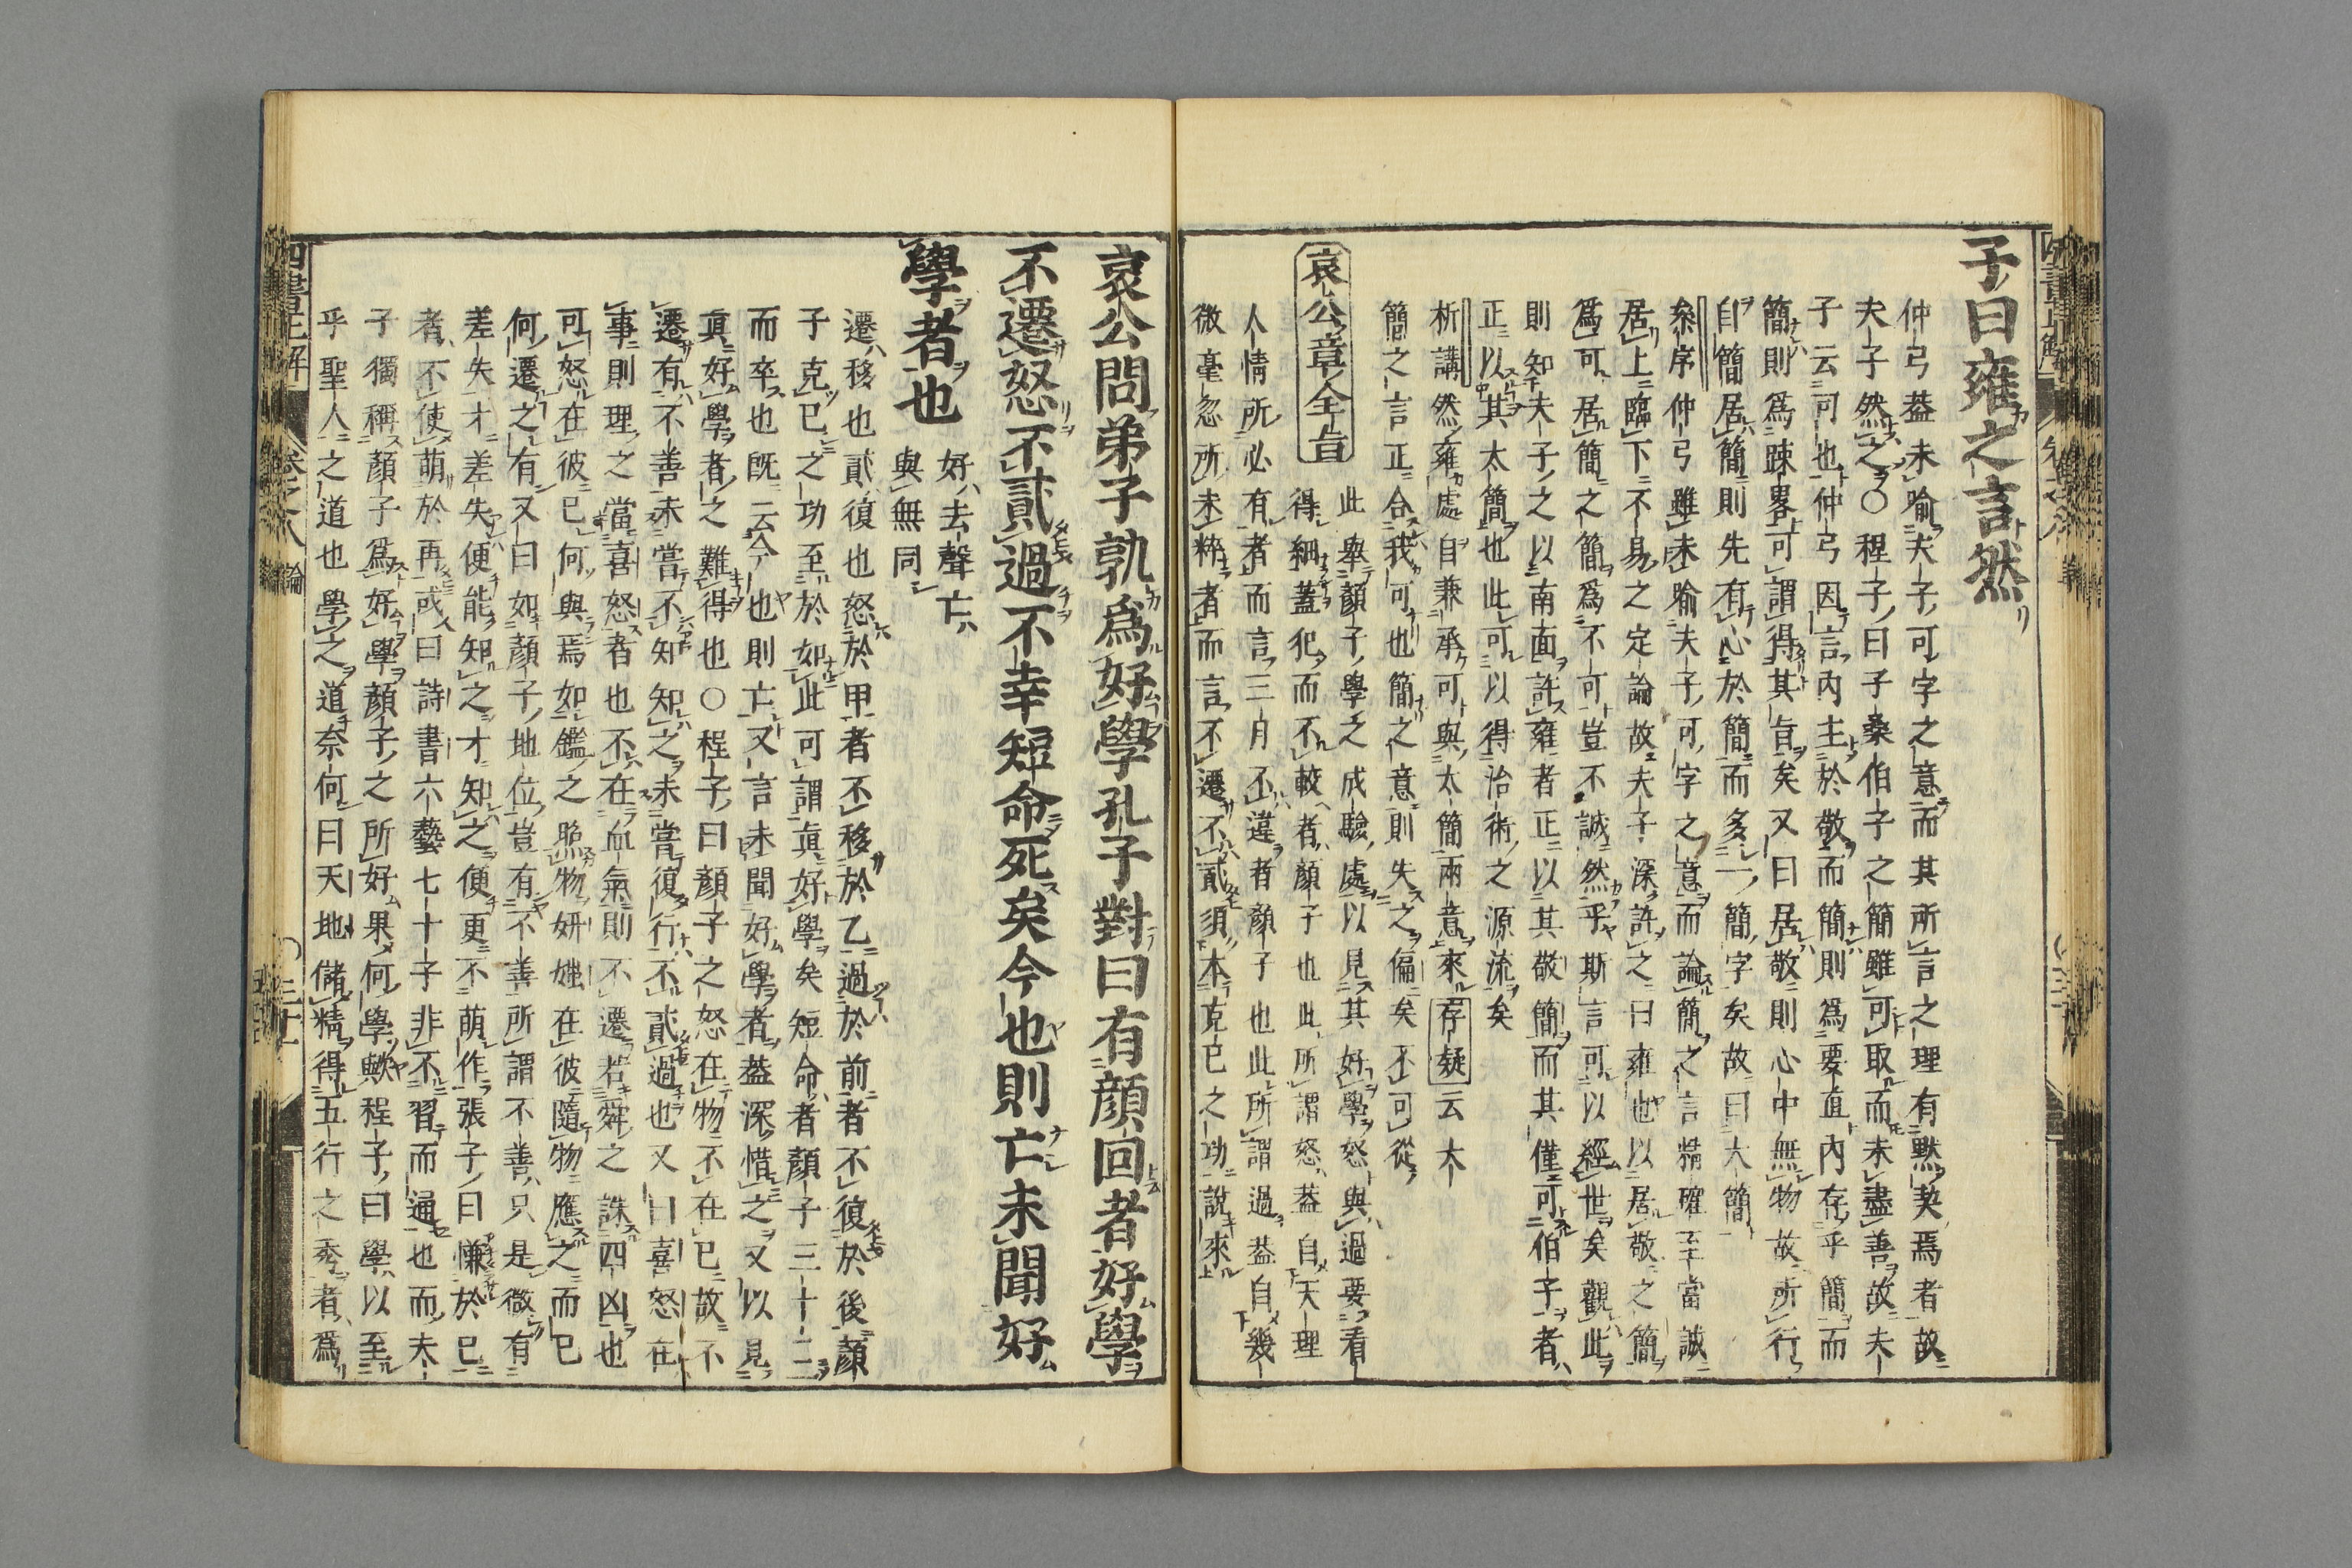 子曰雍之言然
仲弓葢未喻夫子可字之意而其所言之理有默契焉者故
夫子然之○程子曰子桑伯子之簡雖可取而未盡善故夫
子云可也仲弓因言內主於敬而簡則爲要直內存乎簡而
簡則爲踈畧可謂得其旨矣又曰居敬則心中無物故所行
自簡居簡則先有心於簡而多一簡字矣故曰大簡
叅序仲弓雖未喻夫子可字之意而論簡之言精確至當誠
居上臨下不易之定論故夫子深許之曰雍也以居敬之簡
爲可居簡之簡爲不可豈不誠然乎斯言可以經世矣觀此
則知夫子之以南面許雍者正以其敬簡而其僅可伯子者
正以其太簡也此可以得治術之源流矣
析講然雍處自兼承可與太簡兩意來存疑云太
簡之言正合我可也簡之意則失之偏矣不可從
哀公章全旨
此舉顏子學之成驗處以見其好學怒與過要看
得細蓋犯而不較者顏子也此所謂怒葢自天理
人情所必有者而言三月不違者顏子也此所謂過葢自幾
微毫忽所未粹者而言不遷不貳須本克已之功說來
哀公問弟子孰爲好學孔子對曰有顏回者好學
不遷怒不貳過不幸短命死矣今也則亡未聞好
學者也
好去聲亡
與無同
遷移也貳復也怒於甲者不移於乙過於前者不復於後顏
子克已之功至於如此可謂眞好學矣短命者顏子三十二
而卒也旣云今也則亡又言未聞好學者葢深惜之又以見
眞好學者之難得也○程子曰顏子之怒在物不在已故不
遷有不善未嘗不知知之未嘗復行不貳過也又曰喜怒在
事則理之當喜怒者也不在血氣則不遷若舜之誅四凶也
可怒在彼已何與焉如鑑之照物妍媸在彼隨物應之而已
何遷之有又曰如顏子地位豈有不善所謂不善只是微有
差失才差失便能知之才知之便更不萌作張子曰慊於已
者不使萌於再或曰詩書六藝七十子非不習而通也而夫
子獨稱顏子爲好學顏子之所好果何學歟程子曰學以至
乎聖人之道也學之道奈何曰天地儲精得五行之秀者爲